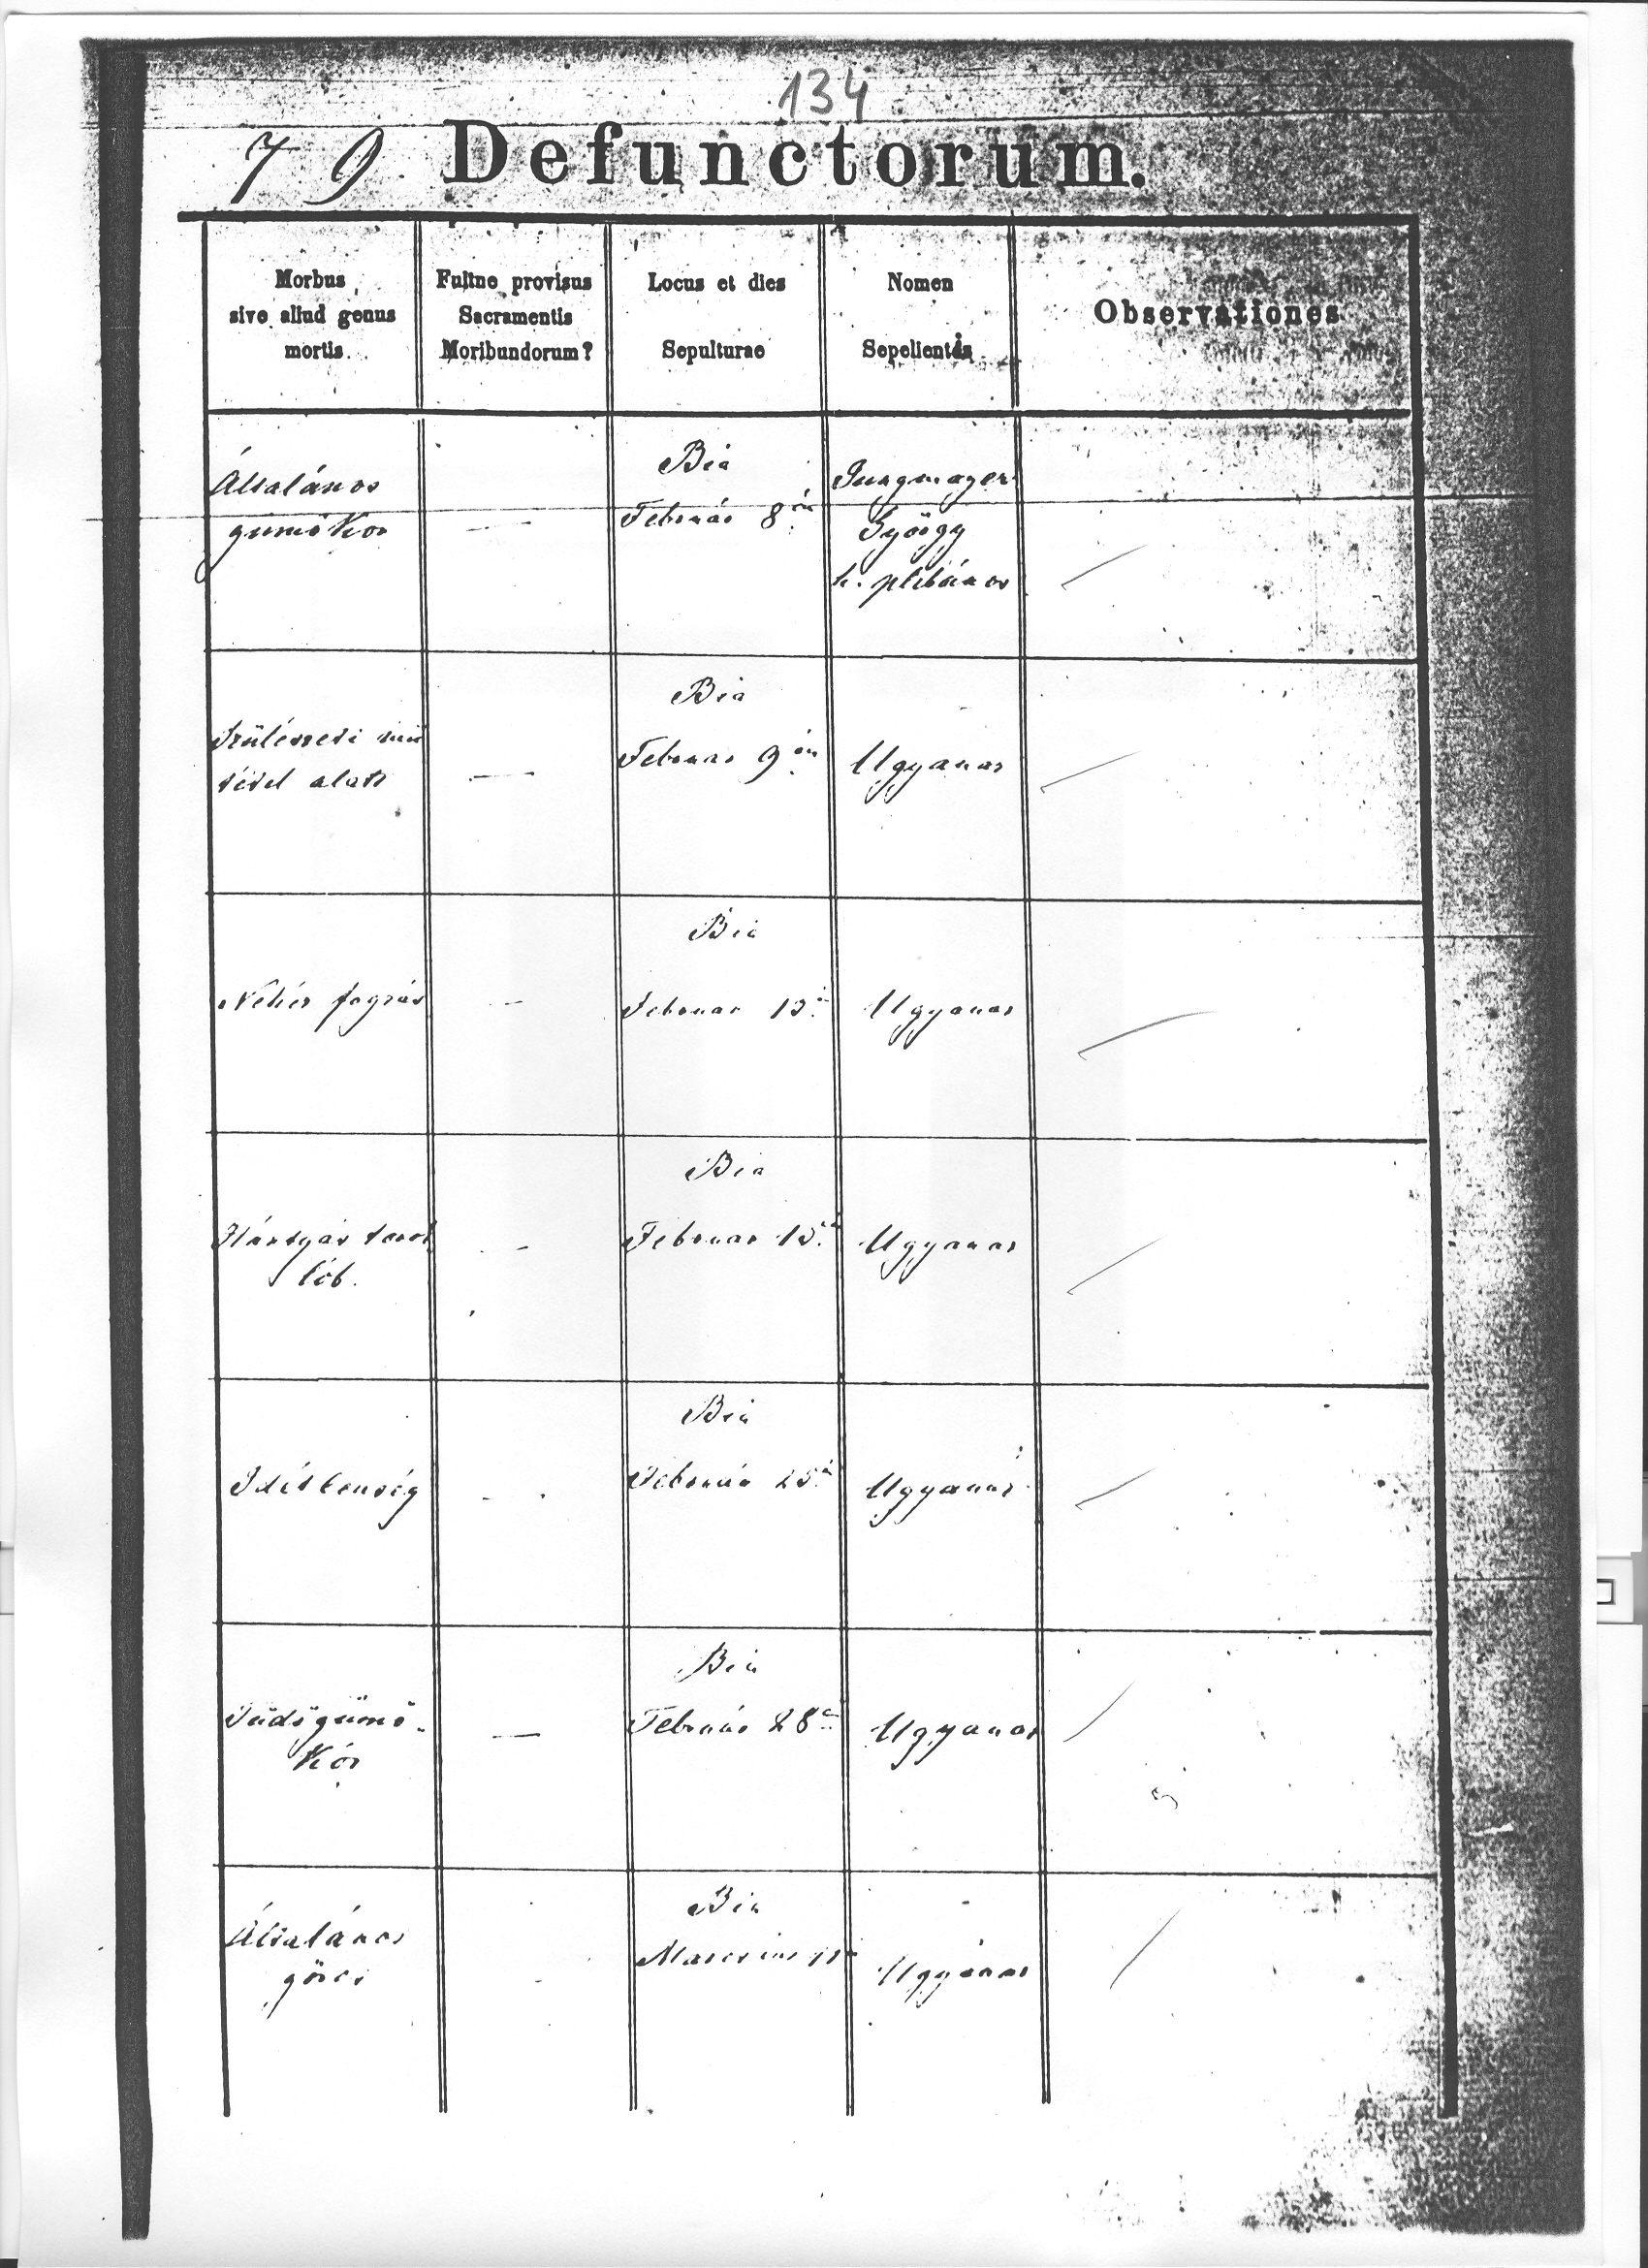 134
7 9 Defunctorum.
Morbus
sive aliud genus
mortis
Fuitne provisus
Sacramentis
Moribundorum?
Locus et dies
Sepulturae
Nomen
Sepelientis
Observationes
Általános
gümőkór
—
Bia
Február 8án
Jungmayer
György
h. plébános
Szülészeti mű
tétel alatt
—
Bia
Februar 9én
Ugyanaz
Nehéz fogzás
—
Bia
Februar
Ugyanaz
Hártyás torok
lób.
-
Bia
Februar 15
Ugyanaz
Idétlenség
-
Bia
Február 25
Ugyanaz
Tüdőgümő-
kór
—
Bia
Február 28
Ugyanaz
Általános
görcs
-
Bia
Marczius
Ugyanaz